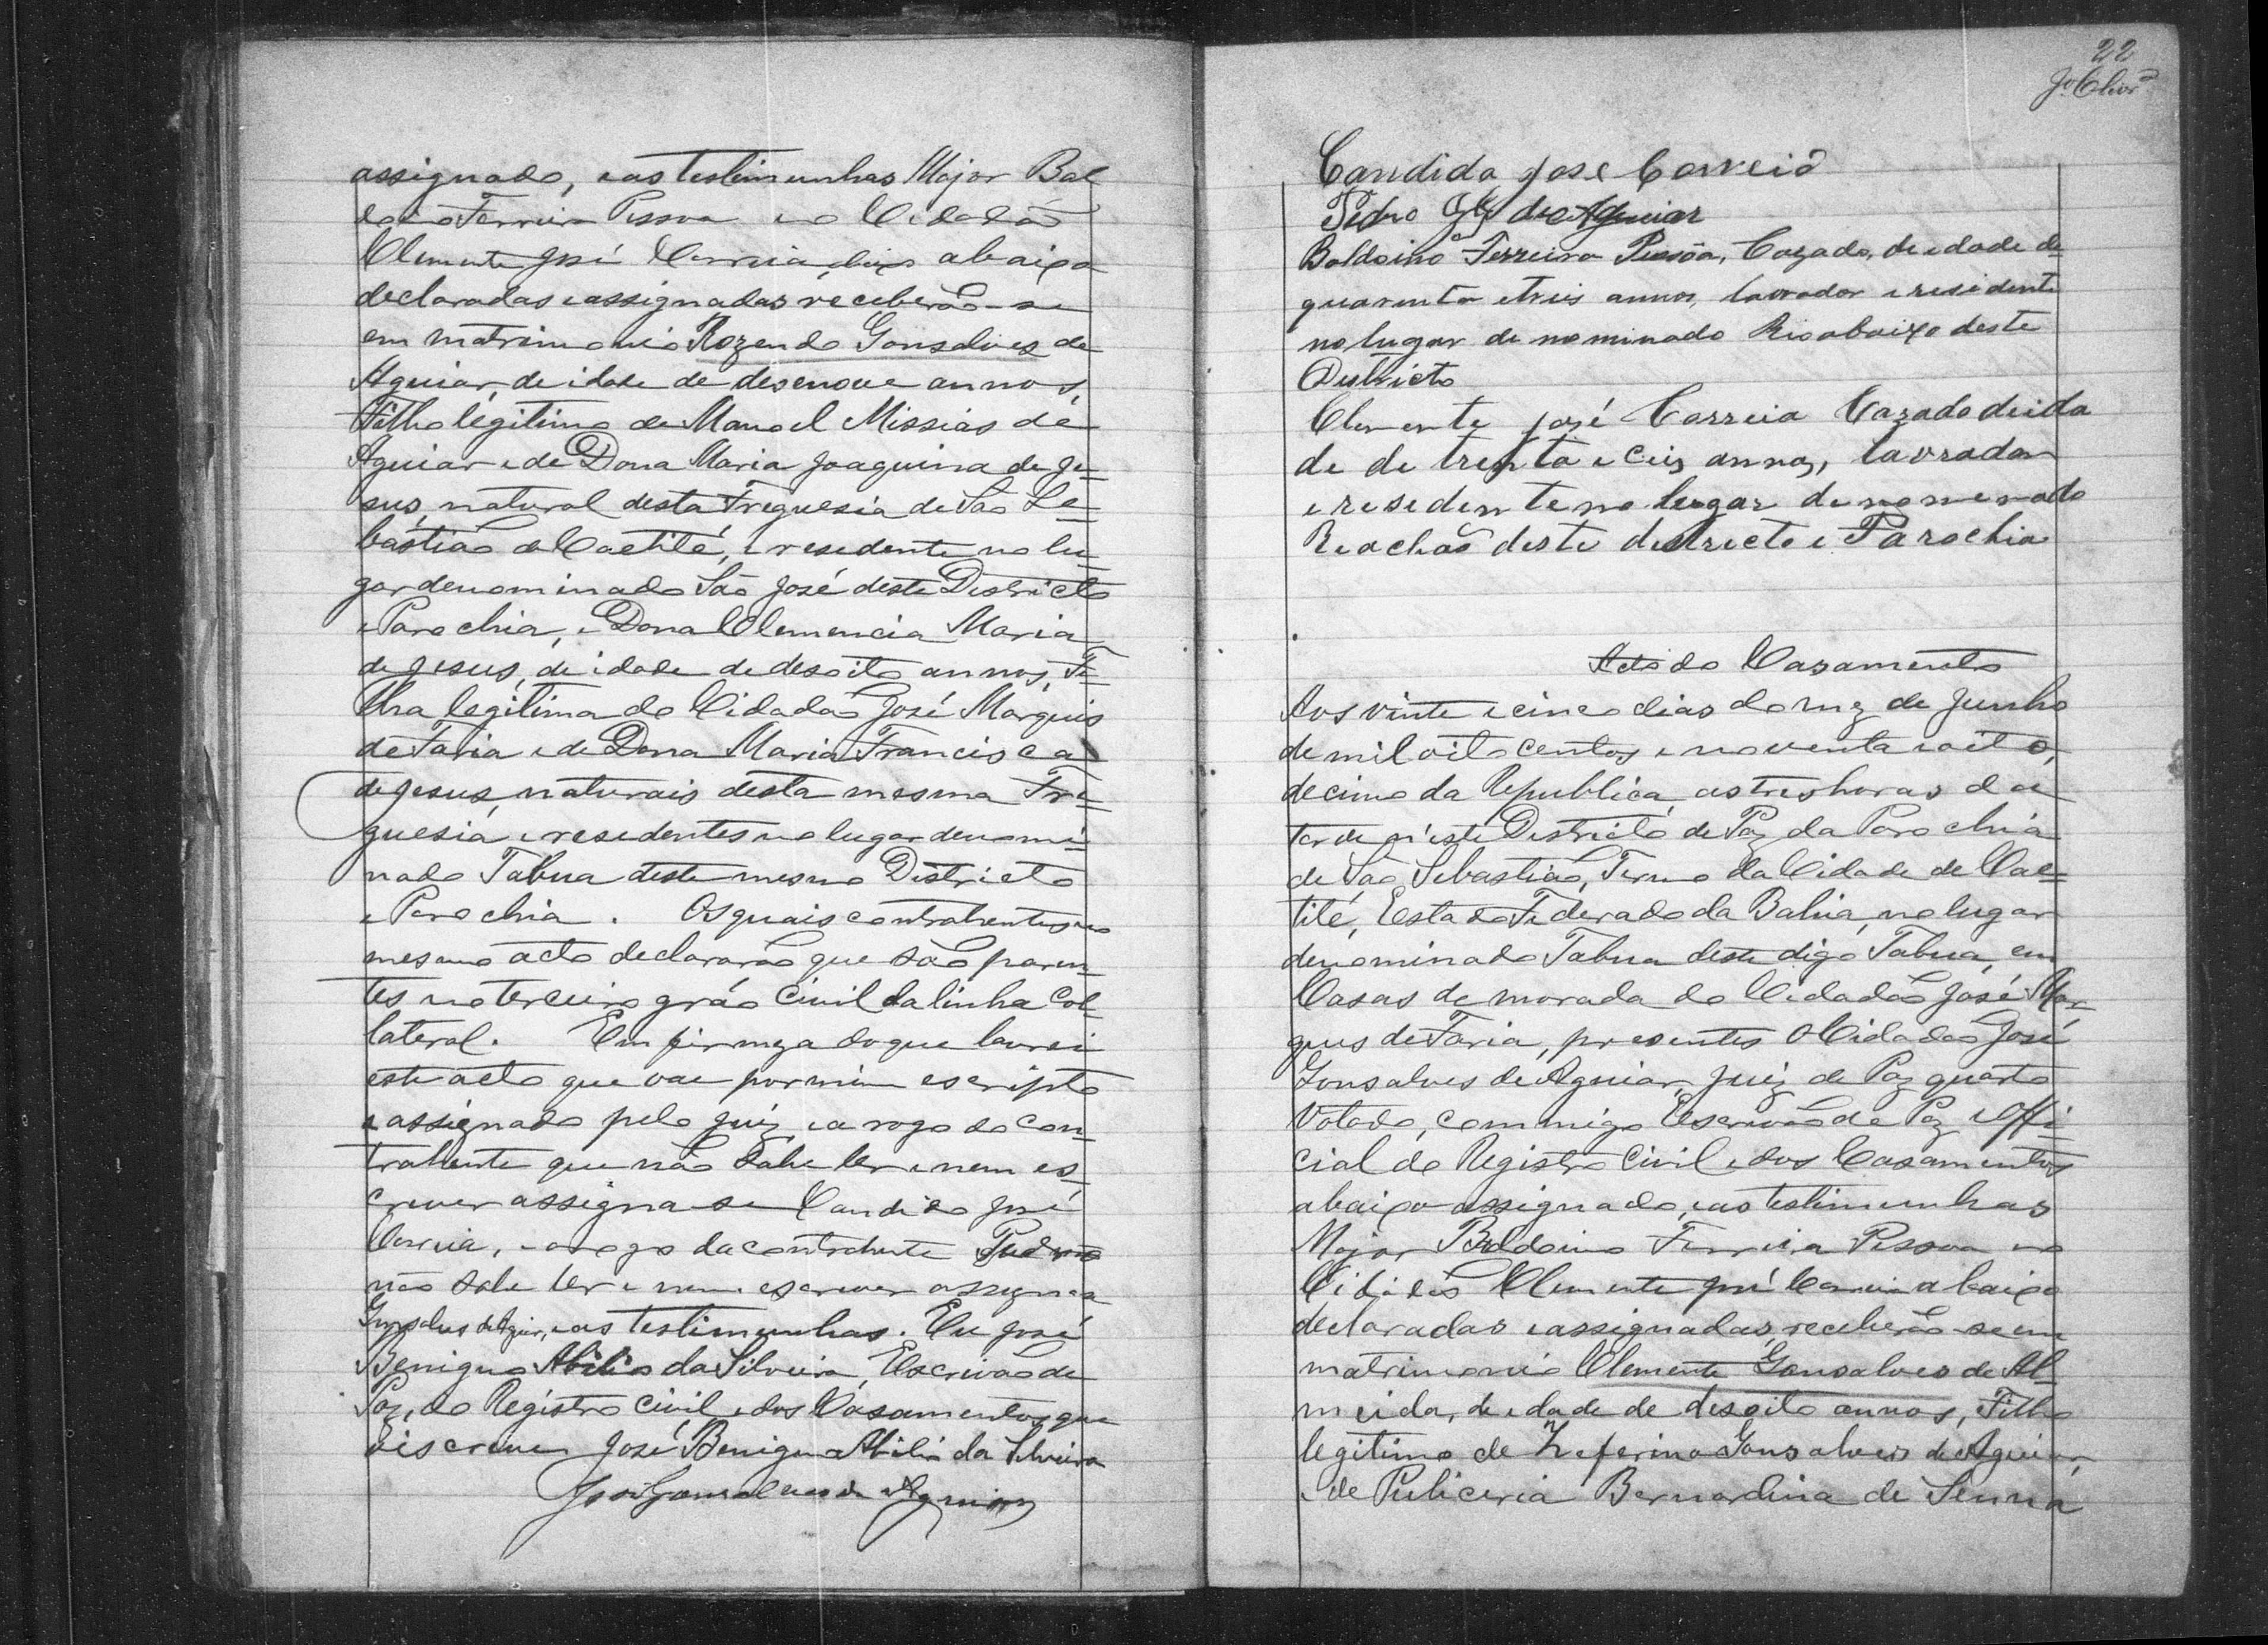 assignado, e as testimunhas Major Bal
doino Ferreira Pessoa e o Cidadão
Clemente José Correia, abaixo
declaradas e assignadas receberão-se
em matrimonio Rozendo Gonsalves de
Aguiar, de idade de desenove annos,
Filho legitimo de Manoel Missias de
Aguiar e de Dona Maria Joaquina de Je-
sus, natural desta Freguesia de São Se-
bastião do Caetité, e residente no lu-
gar denominado São José deste Districto
e Parochia, e Dona Clemencia Maria
de Jesus, de idade de desoito annos, Fi-
lha legitima do Cidadão José Marquis
de Faria e de Dona Maria Francisca
de Jesus, naturais desta mesma Fre-
guesia e residentes no lugar denomi-
nado Tabua deste mesmo Districto
e Parochia. Os quais contrahentes no
mesmo acto declararão que são paren-
tes no terceiro gráo Civil da linha Col-
lateral. Em firmeza do que lavrei
este acto que vae por mim escripto
e assignado pelo juiz, e a rogo do con-
trahente que não sabe ler e nem es-
crever assigna-se Candido José
Correia, e a rogo da contrahente
não sabe ler e nem escrever assigna
Gonsalves de Aguiar, e as testimunhas. Eu José
Benigno Abilio da Silveira, Escrivão de
Paz, do Registro Civil e dos Casamentos, que
o iscrevi José Benigno Abilio da Silveira
José Gonsalves de Aguiar
22
Candido José Correia
Pedro Glz de Aguiar
Baldoino Ferreira Pessôa, Cazado, de edade de
quarenta e treis annos, lavrador e residente
no lugar de nominado Rio abaixo deste
Districto
Clemente José Correia Cazado de ida
de de trenta e Ceis annos, lavrador
e residente no lugar denomenado
Reachão deste destrecto e Parochia
Acto do Casamento
Aos vinte e cinco dias do mez de Junho
de mil oito centos e noventa e oito,
decimo da Republica, as tres horas da
tarde n'este Districto de Paz da Parochia
de São Sebastião, Termo da Cidade de Cae-
tité, Estado Federado da Bahia, no lugar
denominado Tabua deste digo Tabua, em
Casas de morada do Cidadão José Mar-
ques de Faria, presentes o Cidadão José
Gonsalves de Aguiar, Juiz de Paz quarto
Votado, commigo Escrivão de Paz e Offi-
cial do Registro Civil e dos Casamentos
abaixo assignado, e as testimunhas
Major Baldoino Ferreira Pessoa e o
Cidadão Clemente José Correia abaixo
declaradas e assignadas, receberão-se em
matrimonio Clemente Gonsalves de Al-
meida, de edade de desoito annos, Filho
legitimo de Zeferino Gonsalves de Aguiar,
e de Puliceria Bernardina de Senna